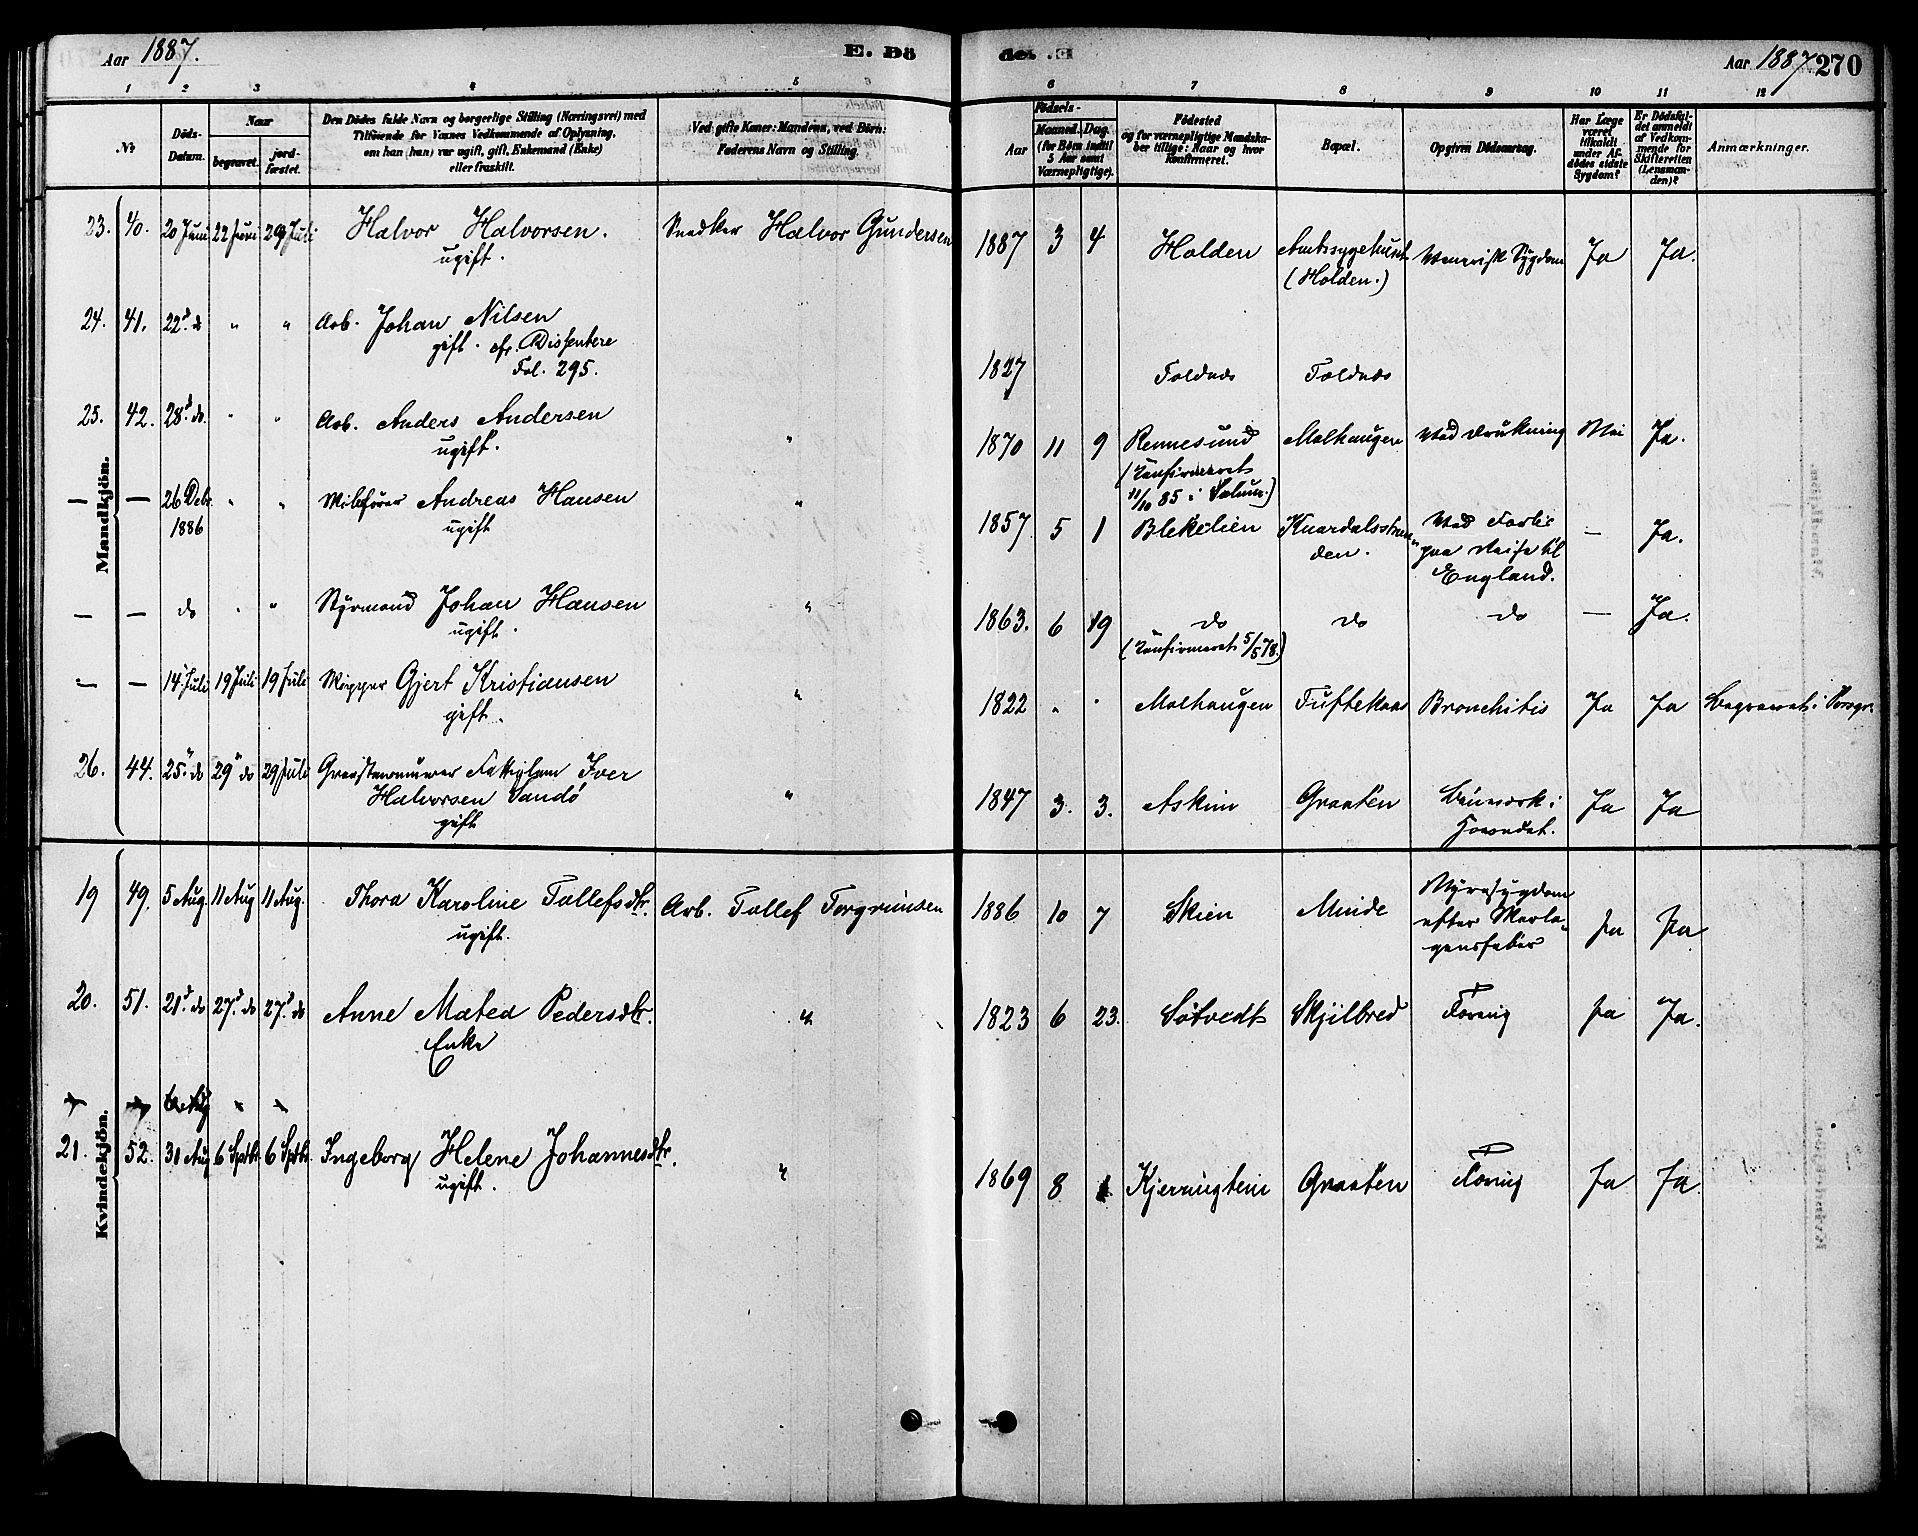 Aar 1887. E. Dö
de. Aar 1887 270
1 2 3 4 5 6 7 8 9 10 11 12
No
Döds-Datum.
Naar
begravet. jordfæstet.
Den Dödes fulde Navn og borgerlige Stilling (Næringsvei) med
Tilföiende for Voxnes Vedkommende af Oplysning,
om han (hun) var ugift, gift, Enkemand (Enke)
eller fraskilt.
Ved gifte Koner: Mandens, ved Börn:
Faderens Navn og Stilling.
Födsels-
Aar
Maaned. Dag.
(for Börn indtil
5 Aar samt
Værnepligtige).
Födested
og for værnepligtige Mandskaber tillige: Naar og hvor
konfirmeret.
Bopæl.
Opgiven Dödsaarsag.
Har Læge
været
tilkaldt
under Afdödes sidste
Sygdom?
Er Dödsfaldet anmeldt
af Vedkommende for
Skifteretten
(Lensmanden)?
Anmærkninger.
Mandkjön.
23. 40. 20 Juni 22 Juni 29 Juli Halvor Halvorsen. Snedker Halvor Gundersen 1887 3 4 Holden Amtssygehuset Venerisk Sygdom Ja Ja.
ugift. (Holden.)
24. 41. 22d do " " Arb. Johan Nilsen
gift. cfr. Dissentere
Fol. 295. 1827 Foldnæs Foldnæs
25. 42. 28d do. " " Arb. Anders Andersen " 1870 11 9 Rennesund Melhaugen Ved Drukning Nei Ja.
ugift. (Konfirmeret
11/10 85 i Solum.)
— — 26 Debr. " " Andreas Hansen " 1857 5 1 Blekelien Knardalsstran- Ved Forlis — Ja.
1886 ugift den. paa Reise til
England.
— — do " " Styrmand Johan Hansen " 1863. 6 19 do do do — Ja.
ugift. (Konfirmeret 5/5 78.)
— — 14 Juli 19 Juli 19 Juli Skipper Gjert Kristiansen " 1822 " " Melhaugen Tuftekaas Bronchitis Ja Ja Begravet i
gift.
26. 44. 25 do 29 do 29 Juli Iver
Halvorsen Sandö " 1847 3. 3. Askim Graaten Ja Ja
gift
Kvindekjön.
19 49. 5 Aug. 11 Aug 11 Aug. Thora Karoline Tollefsdtr. Arb. Tollef Torgrimsen 1886 10 7 Skien Minde Nyresygdom
ugift. efter Skarla-
gensfeber Ja Ja.
20. 51. 21d do 27d do 27d do Anne Matea Pedersdtr. " 1823 6 23. Sötvedt Skjilbred Tæring Ja Ja.
Enke
21. 52. 31 Aug 6 Septbr. 6 Septbr. Ingeborg Helene Johannesdtr. " 1869 8 1 Kjerringtein Graaten Tæring Ja Ja.
ugift.